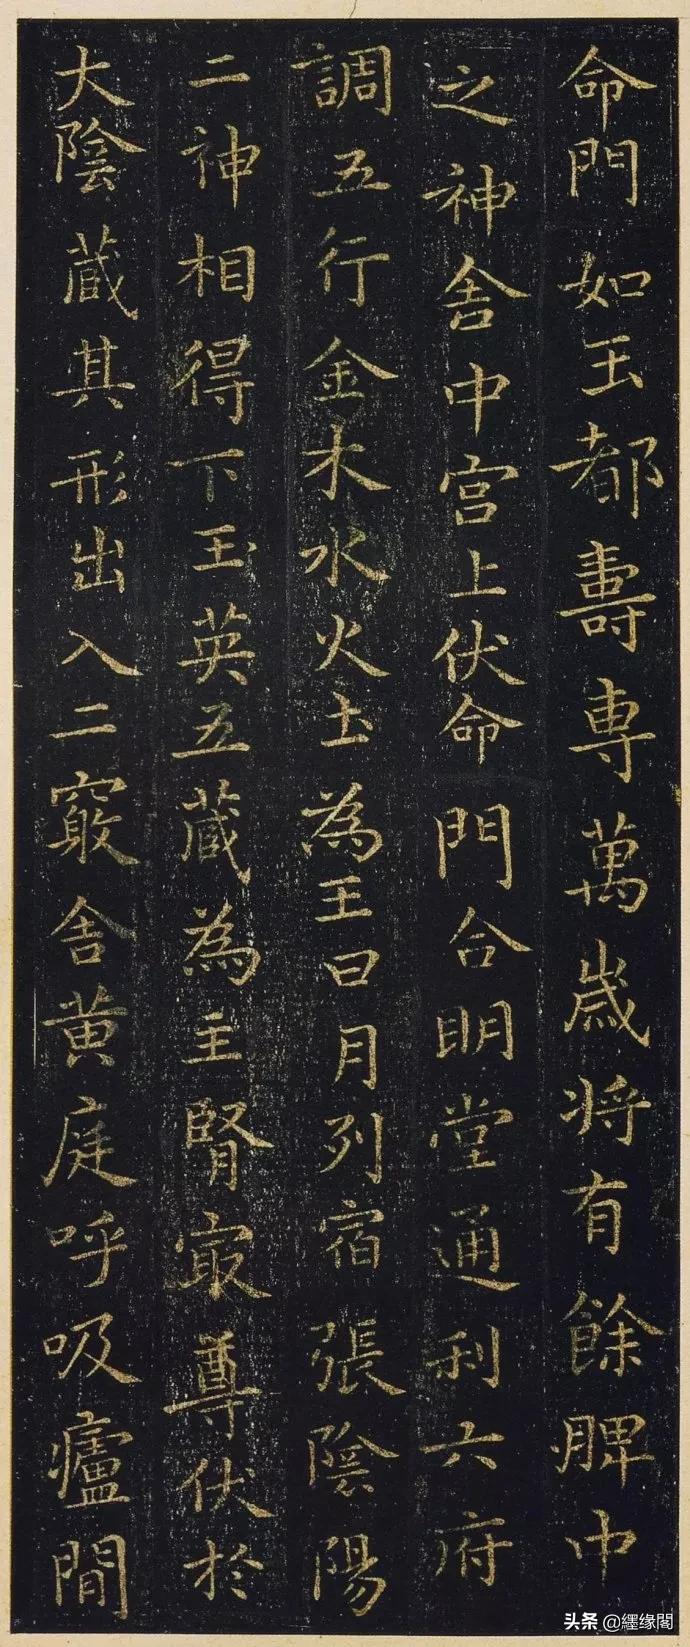 命門如王都壽專萬歲將有餘脾中
之神舍中宮上伏命門合明堂通利六府
調五行金木水火土為王日月列宿張陰陽
二神相得下玉英五蔵為主腎㝡尊伏於
大陰蔵其形出入二竅舍黄庭呼吸廬間
头条@纆缘閣